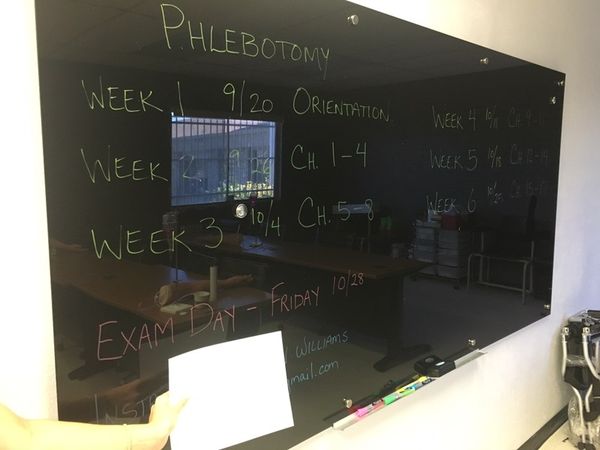 PHLEBOTOMY
WEEK 1 9/20 ORIENTATION
WEEK 2 9/26 CH. 1-4
WEEK 3 10/4 CH. 5-8
WEEK 4 10/11 CH.
WEEK 5 10/18 CH.
WEEK 6 10/25 CH.
EXAM DAY - FRIDAY 10/28
WILLIAMS
mail.com